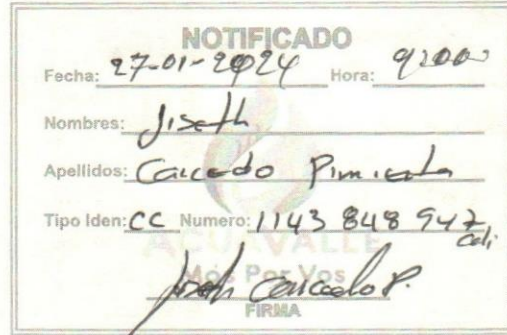 NOTIFICADO
Fecha: 27-01-2024 Hora: 9:00
Nombres: Jiseth
Apellidos: Caicedo Pimienta
Tipo Iden: CC Numero: 1143 848 947 Cali
ACUAVALLE
Más Por Vos
Jiseth Caicedo P.
FIRMA